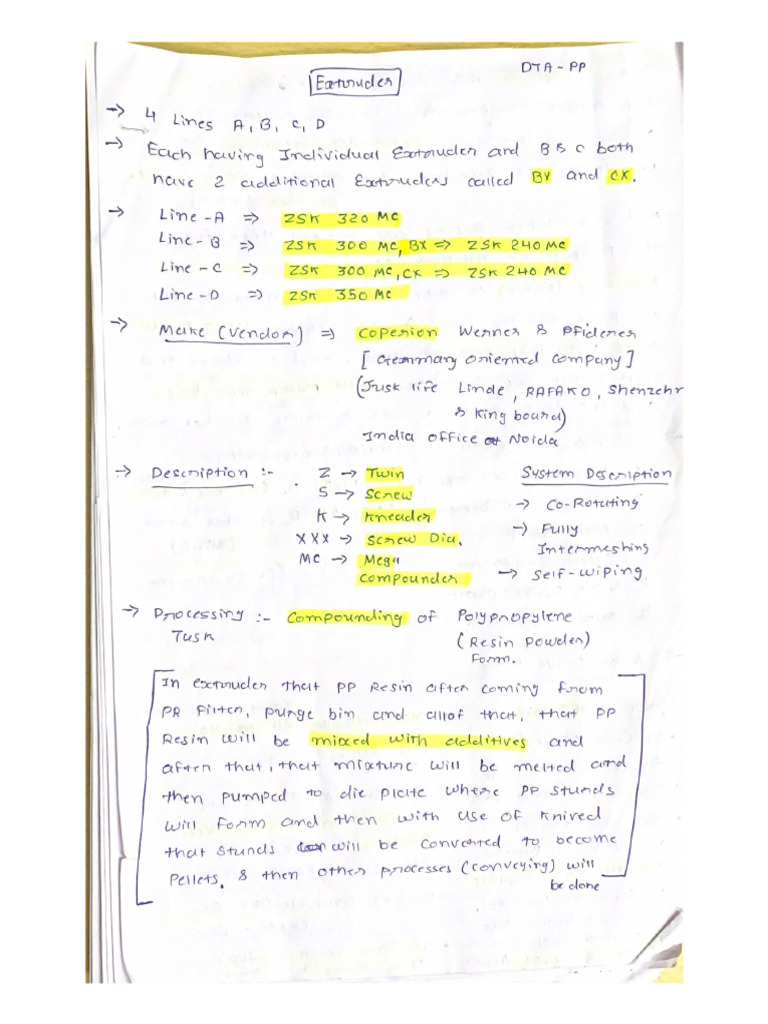 DTA - PP
Extruder
→ 4 Lines A, B, C, D
→ Each having Individual Extruder and B & C both
have 2 additional Extruders called BX and CX.
→ Line - A ⇒ ZSK 320 MC
Line - B ⇒ ZSK 300 MC, BX ⇒ ZSK 240 MC
Line - C ⇒ ZSK 300 MC, CX ⇒ ZSK 240 MC
Line - D ⇒ ZSK 350 MC
→ Make (Vendor) ⇒ Coperion Werner & Pfiderer
[Germany oriented company]
(Just life Linde, RAFAKO, Shenzehn
& King board)
India office at Noida
→ Description :- Z → Twin
S → Screw
K → Kneader
XXX → Screw Dia.
MC → Mega
Compounder
System Description
→ Co-Rotating
→ Fully
Intermeshing
→ Self-wiping
→ Processing :- Compounding of Polypropylene
Task (Resin Powder)
Form.
In extruder that PP Resin after coming from
PR Filter, purge bin and all of that, that PP
Resin will be mixed with additives and
after that, that mixture will be melted and
then pumped to die plate where PP stands
will form and then with use of Knived
that stands will be converted to become
Pellets. & then other processes (conveying) will
be done